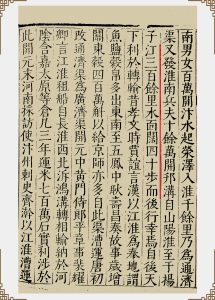 南男女百萬開汴水起滎澤入淮千餘里乃爲通濟
渠又發淮南兵夫十餘萬開邗溝自山陽淮至于楊
子江三百餘里水面闊四十步而後行幸焉自後天
下利於轉輸昔孝文時賈誼言漢以江淮爲奉地謂
魚鹽穀帛多出東南至五鳳中耿壽昌奏故事歲增
關東穀四百萬斛以給京師亦多自此渠漕運唐初
改通濟渠爲廣濟渠開元中黃門侍郎平章事裴耀
卿言江淮租船自長淮西北泝鴻溝轉相輸納於河
陰含嘉太原等倉凡三年運米七百萬石實利涉於
此開元末河南採訪使汴州刺史齊澣以江淮漕運